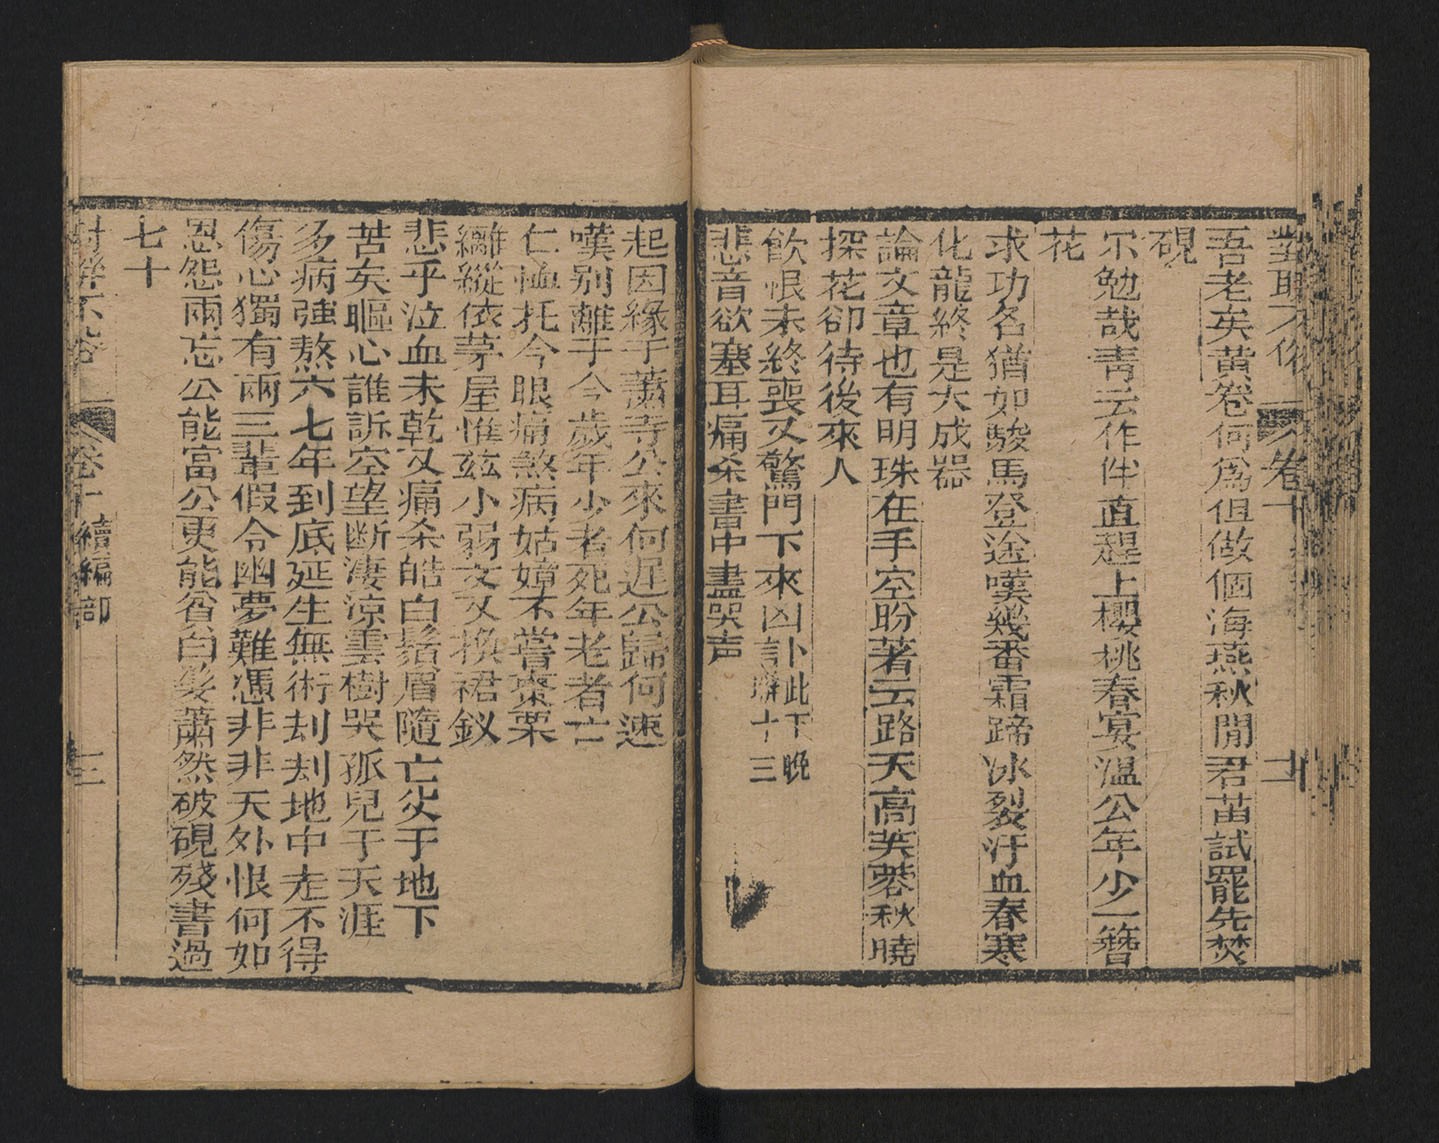 對聯不俗 卷十 十二
吾老矣黃卷何爲但做個海燕秋閒君苗試罷先焚
硯
尓勉哉靑云作伴直趕上櫻桃春宴溫公年少一簪
花
求功名猶如駿馬登途嘆幾番霜蹄冰裂汗血春寒
化龍終是大成器
論文章也有明珠在手空盼著云路天高芙蓉秋曉
探花卻待後來人
飲恨未終喪又驚門下來凶訃此下晚聯十三
悲音欲塞耳痛杀書中盡哭声
起因緣于蕭寺公來何遲公歸何速
嘆别離于今歲年少者死年老者亡
仁恤托今眼痛煞病姑嫜不嘗棗栗
繼縱依茅屋惟兹小弱女又換裙釵
悲乎泣血未乾又痛杀皓白鬚眉隨亡父于地下
苦矣嘔心誰訴空望断淒涼雲樹哭孤兒于天涯
多病強熬六七年到底延生無術刦刦地中走不得
傷心獨有兩三輩假令幽夢難憑非非天外恨何如
恩怨兩忘公能富公更能貧白髮蕭然破硯殘書過
七十
對聯不俗 卷十 續編部 十三